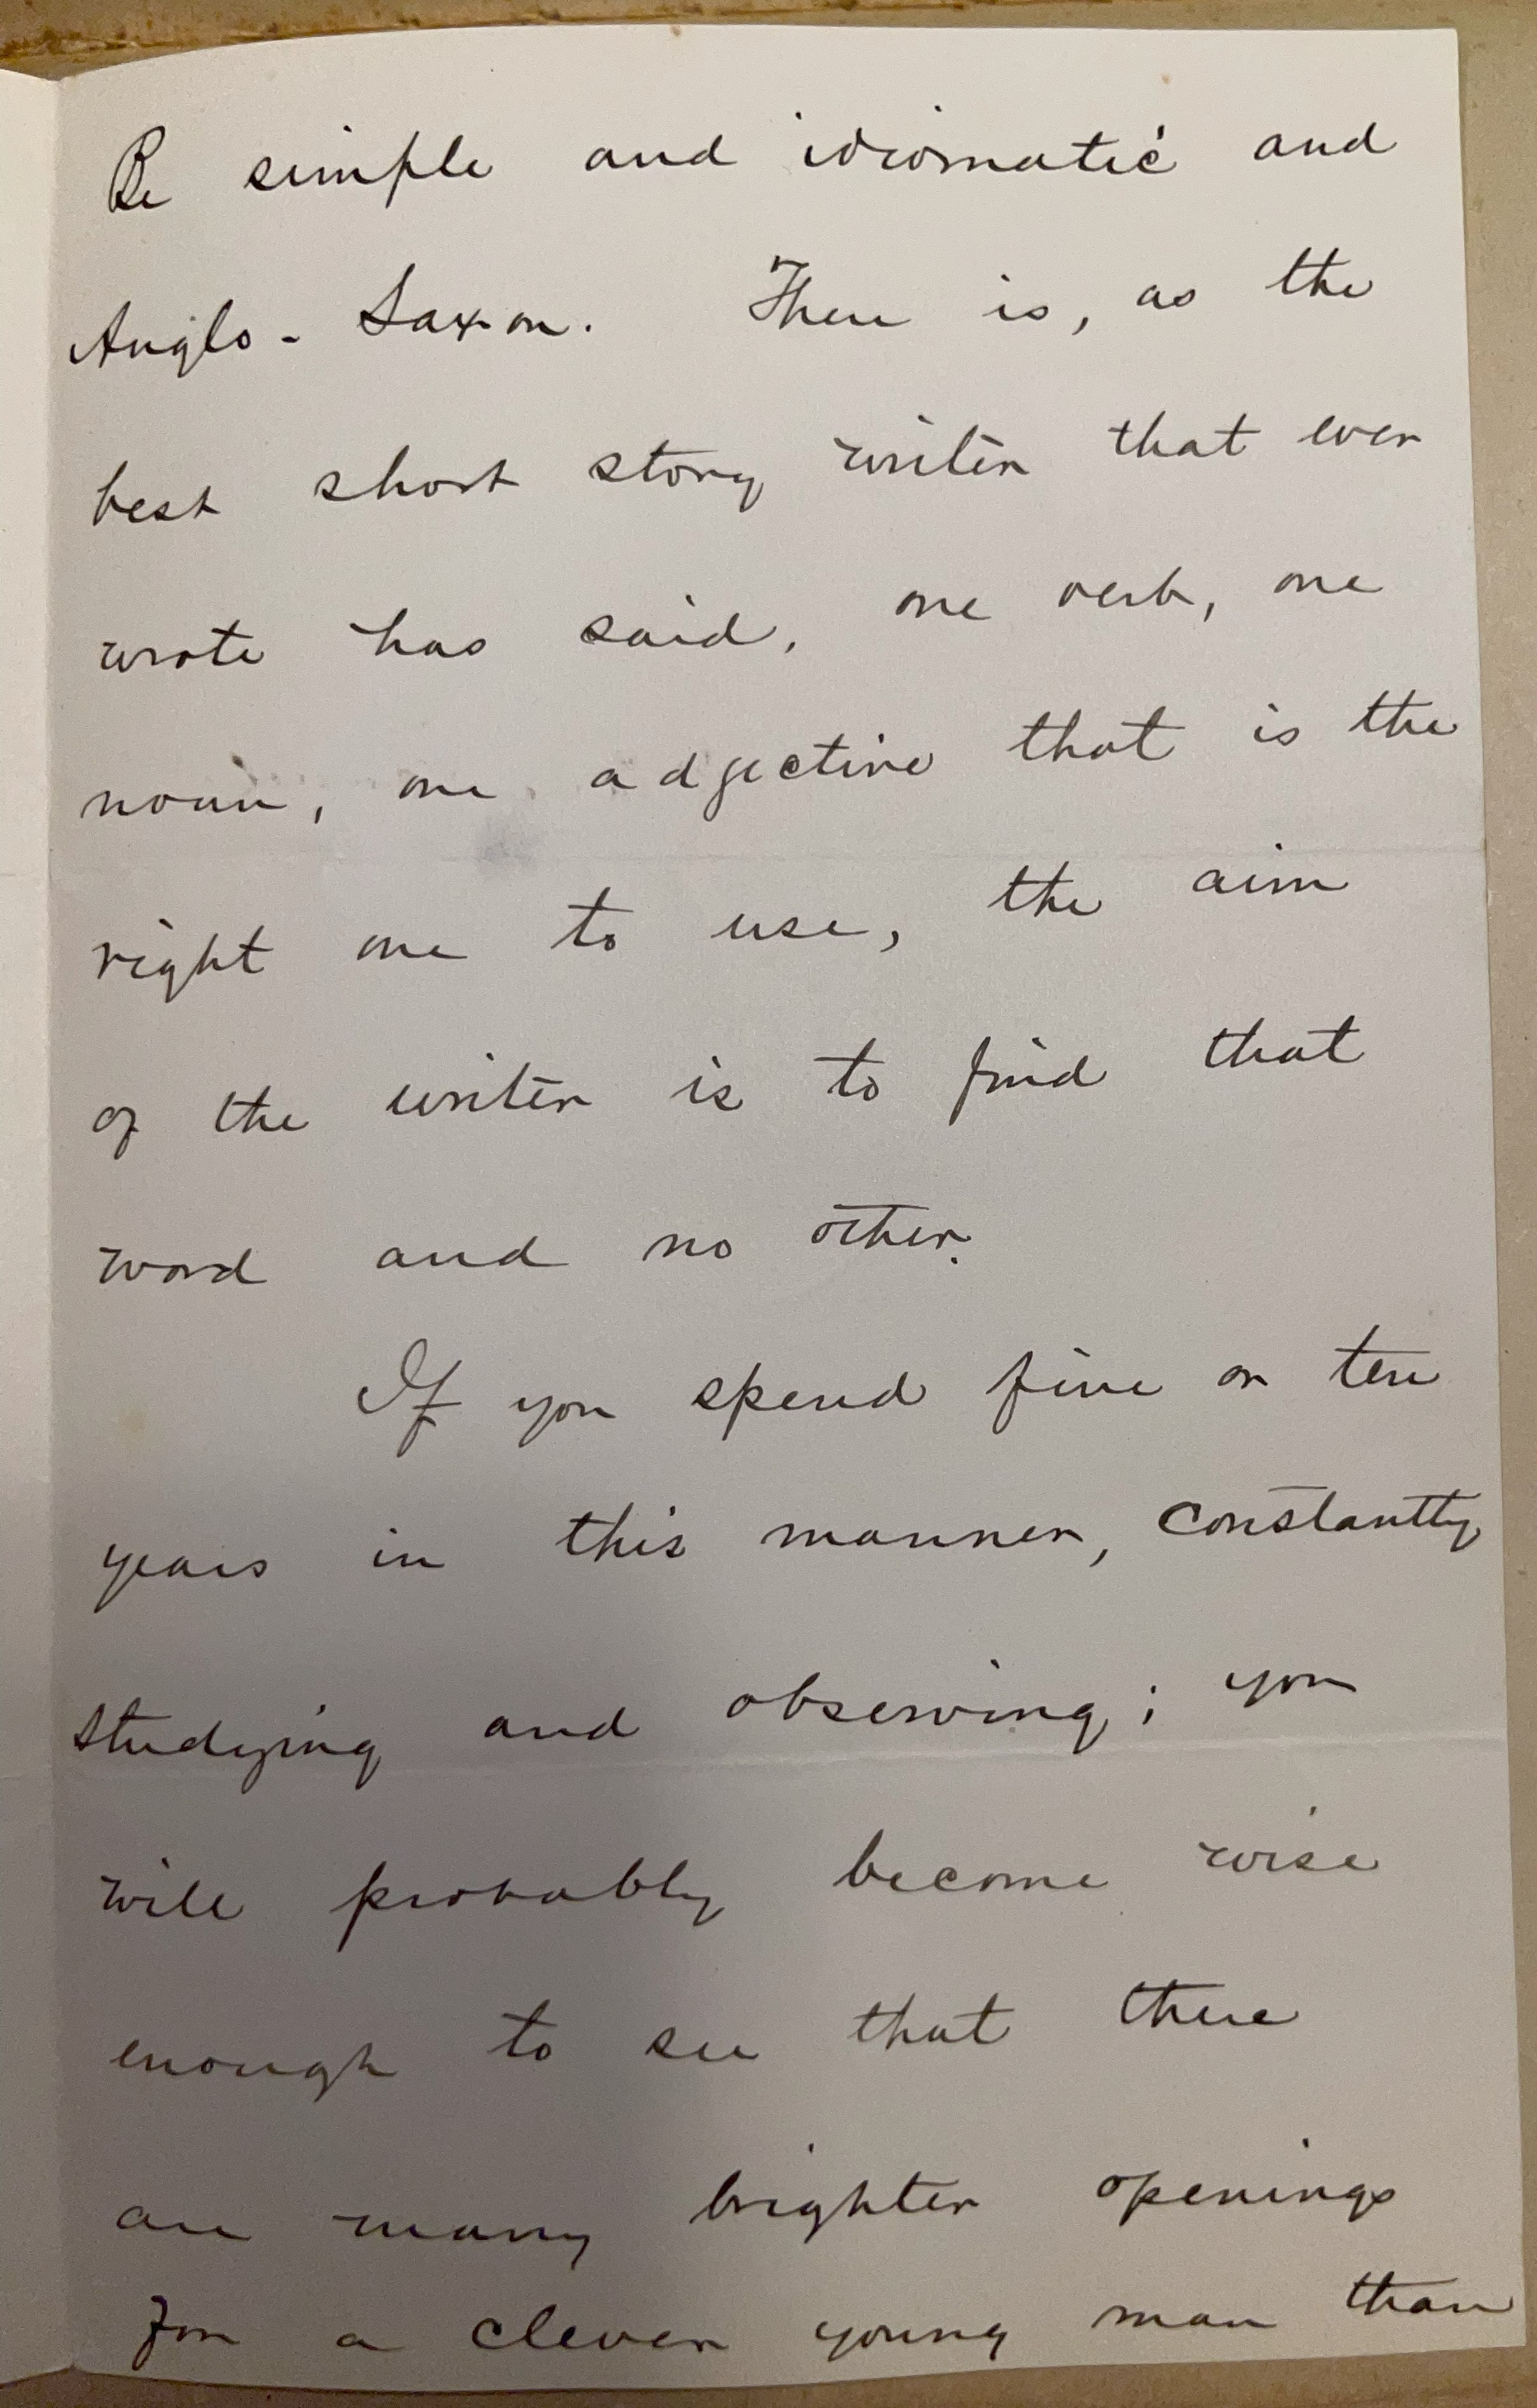 Be simple and idiomatic and
Anglo-Saxon. There is, as the
best short story writer that ever
wrote has said, one verb, one
noun, one adjective that is the
right one to use, the aim
of the writer is to find that
word and no other.
If you spend five or ten
years in this manner, constantly
studying and observing; you
will probably become wise
enough to see that there
are many brighter openings
for a clever young man than